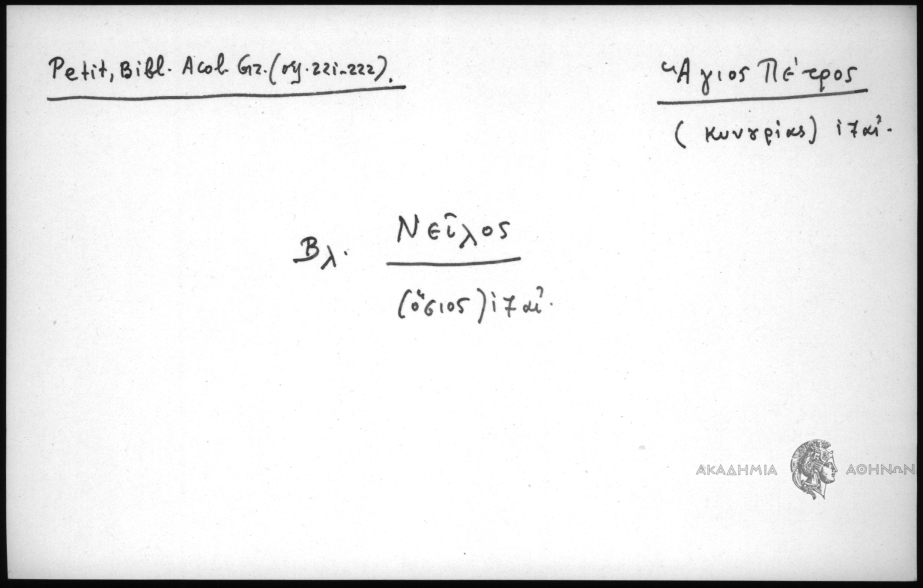 Petit, Bibl. Acol. Gr. (σσ. 221-222).
Ἅγιος Πέτρος
(Κυνουρίας)
Βλ. Νεῖλος
(ὅσιος)
ΑΚΑΔΗΜΙΑ ΑΘΗΝΩΝ